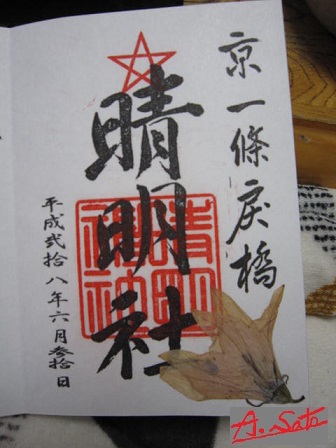 京一條戻橋
晴明社
平成弐拾八年六月参拾日
A. Sato